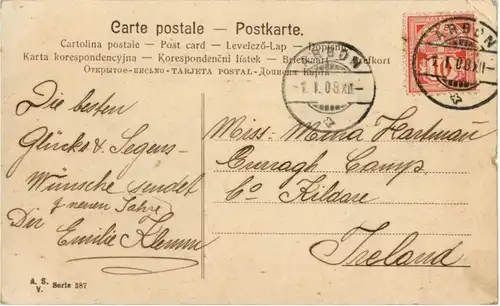 Carte postale – Postkarte.
Cartolina postale – Post card – Levelező-Lap – Dopisnice
Karta korespondencyjna – Korespondenční lístek – Briefkaart – Brefkort
Открытое-письмо-TARJETA POSTAL-Дописна карта
ARBON
-1.I.08.XII-
ARBON
-1.I.08.XII-
10
Die besten
Glücks & Segens-
Wünsche sendet
z neuen Jahre
Dir Emilie Klemm
Miss. Mina Hartmann
Curragh Camp.
Co Kildare
Ireland.
A. S.
V. Serie 387